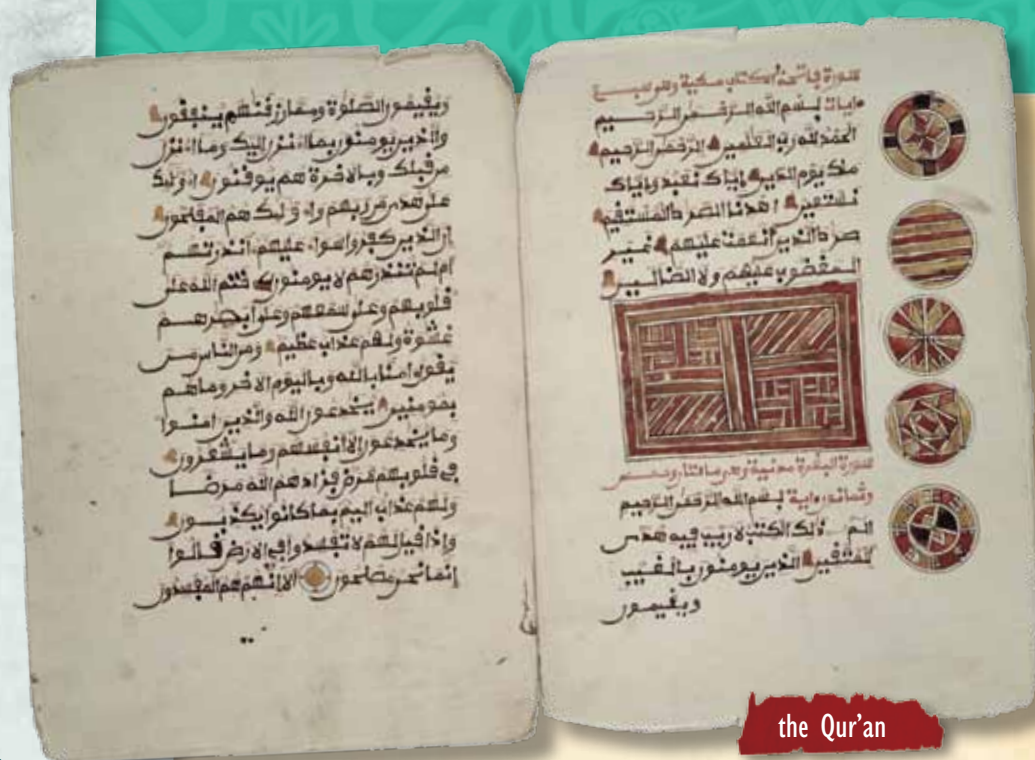 سورة فاتحة الكتاب مكية وهي سبع
ءايات بسم الله الرحمن الرحيم
الحمد لله رب العلمين الرحمن الرحيم
ملك يوم الدين إياك نعبد وإياك
نستعين اهدنا الصرط المستقيم
صرط الذين أنعمت عليهم غير
المغضوب عليهم ولا الضالين
سورة البقرة مدنية وهي مائتان وخمس
وثمانون ءاية بسم الله الرحمن الرحيم
الم ذلك الكتب لا ريب فيه هدى
للمتقين الذين يومنون بالغيب
ويقيمون
ويقيمون الصلوة ومما رزقنهم ينفقون
والذين يومنون بما أنزل إليك وما أنزل
من قبلك وبالاخرة هم يوقنون أولئك
على هدى من ربهم وأولئك هم المفلحون
إن الذين كفروا سواء عليهم ءانذرتهم
أم لم تنذرهم لا يومنون ختم الله على
قلوبهم وعلى سمعهم وعلى أبصرهم
غشوة ولهم عذاب عظيم ومن الناس من
يقول ءامنا بالله وباليوم الاخر وما هم
بمومنين يخدعون الله والذين ءامنوا
وما يخدعون إلا أنفسهم وما يشعرون
في قلوبهم مرض فزادهم الله مرضا
ولهم عذاب اليم بما كانوا يكذبون
وإذا قيل لهم لا تفسدوا في الارض قالوا
إنما نحن مصلحون ألا إنهم هم المفسدون
the Qur'an